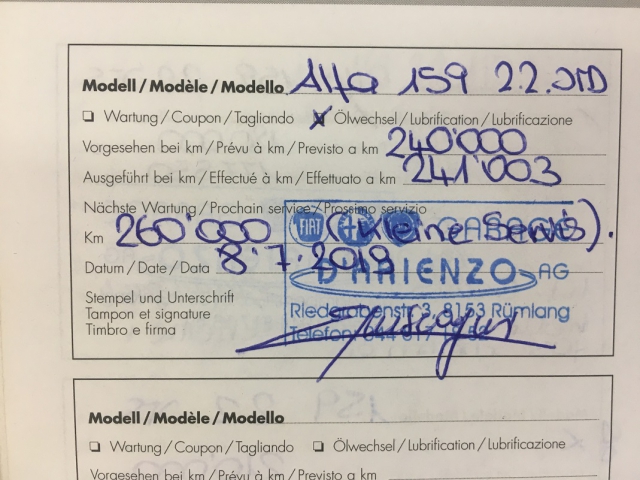 Modell / Modèle / Modello Alfa 159 2.2. JTD
Wartung / Coupon / Tagliando Ölwechsel / Lubrification / Lubrificazione
Vorgesehen bei km / Prévu à km / Previsto a km 240'000
Ausgeführt bei km / Effectué à km / Effettuato a km 241'003
Nächste Wartung / Prochain service / Prossimo servizio
Km 260'000 (+ kleine Servis).
FIAT GARAGE
Datum / Date / Data 8.7.2019
D'ARIENZO AG
Stempel und Unterschrift
Tampon et signature
Timbro e firma
8153 Rümlang
Telefon 044 817
Modell / Modèle / Modello
Wartung / Coupon / Tagliando Ölwechsel / Lubrification / Lubrificazione
Vorgesehen bei km / Prévu à km / Previsto a km